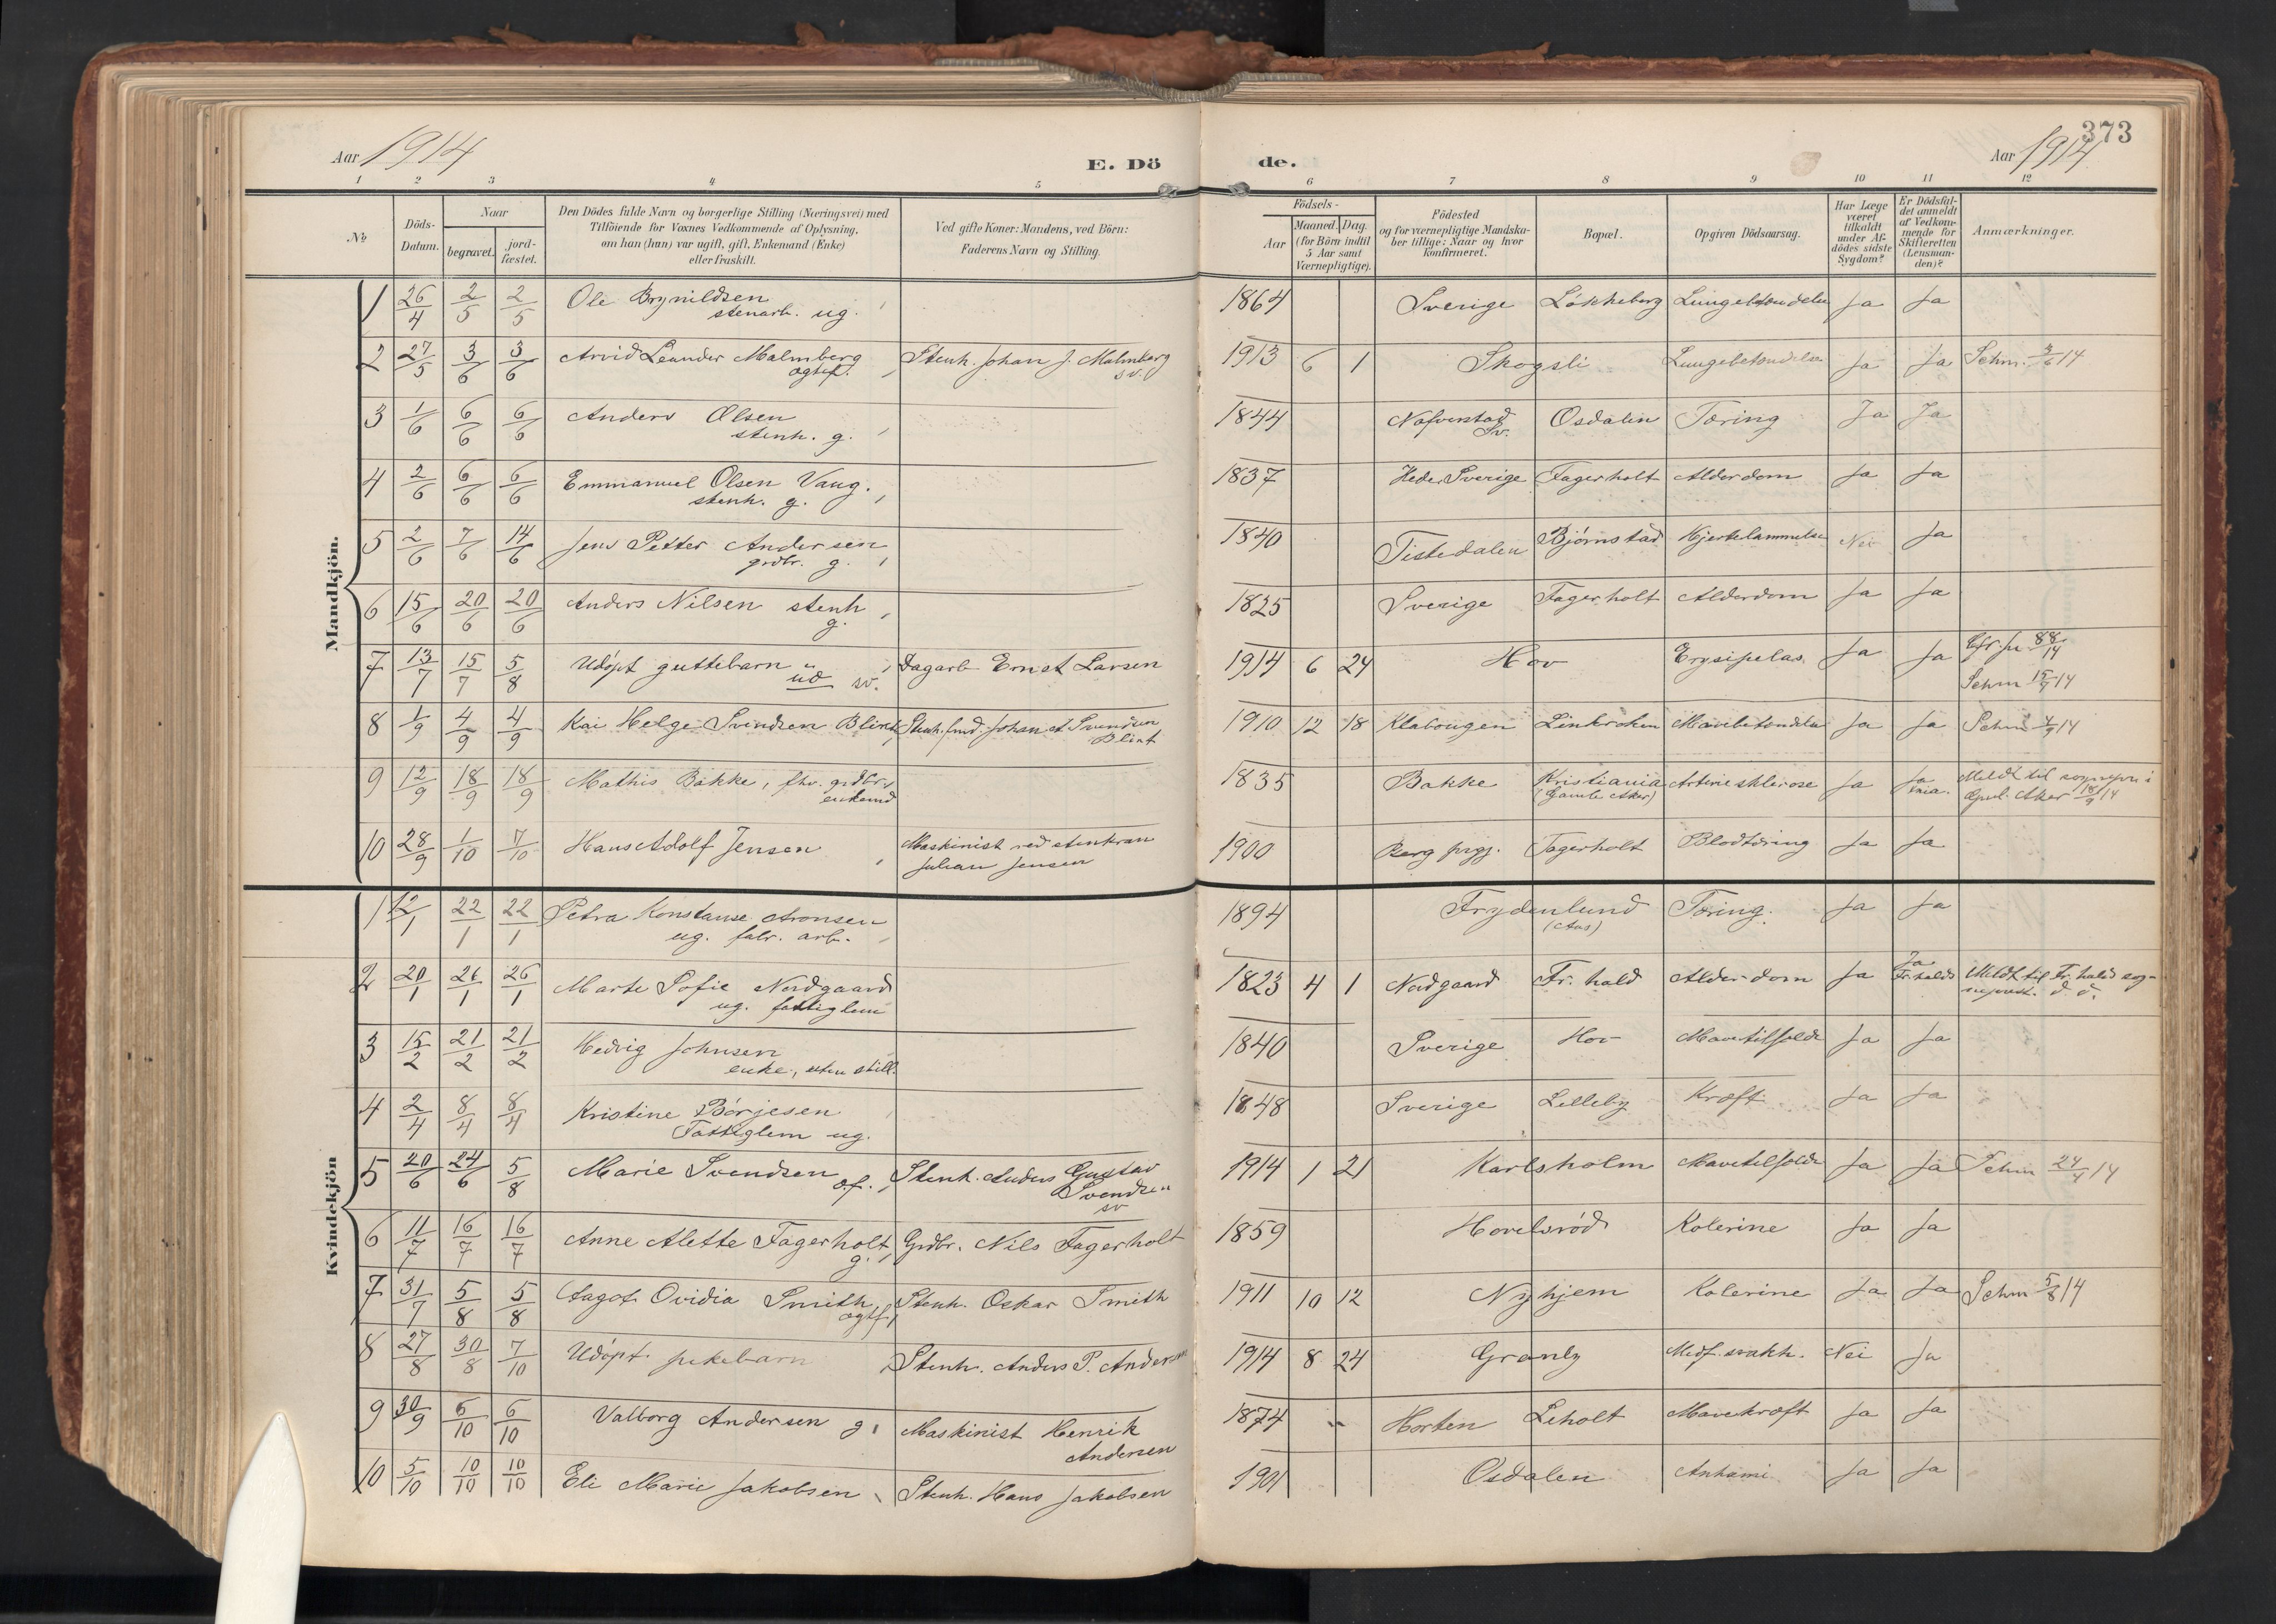 373
Aar 1914
E. Dö
de.
Aar 1914
1 2 3 4 5 6 7 8 9 10 11 12
No
Döds-Datum.
Naar
begravet.
jord-fæstet.
Den Dödes fulde Navn og borgerlige Stilling (Næringsvei) med
Tilföiende for Voxnes Vedkommende af Oplysning,
om han (hun) var ugift, gift, Enkemand (Enke)
eller fraskilt.
Ved gifte Koner: Mandens, ved Börn:
Faderens Navn og Stilling.
Födsels-
Aar
Maaned. Dag.
(for Börn indtil
5 Aar samt
Værnepligtige).
Födested
og for værnepligtige Mandska-
ber tillige: Naar og hvor
konfirmeret.
Bopæl.
Opgiven Dödsaarsag.
Har Læge
været
tilkaldt
under Af-
dödes sidste
Sygdom?
Er Dödsfal-
det anmeldt
af Vedkom-
mende for
Skifteretten
(Lensman-
den)?
Anmærkninger.
Mandkjön.
1 26/4 2/5 2/5 Ole Brynildsen 1864 Sverige Løkkeberg Lungebetændelse Ja Ja
stenarb. ug.
2 27/5 3/6 3/6 Arvid Leander Malmberg Stenh. Johan J. Malmberg 1913 6 1 Skogsli Lungebetændelse Ja Ja Schm. 3/6 14
ogtef. sv.
3 1/6 6/6 6/6 Anders Olsen 1844 Nafverstad Osdalen Tæring Ja Ja
stenh. g. Sv.
4 2/6 6/6 6/6 Emmanuel Olsen Vang. 1837 Hede Sverige Fagerholt Alderdom Ja Ja
stenh. g.
5 2/6 7/6 14/6 Jens Petter Andersen 1840 Tistedalen Bjørnstad Hjertelammelse Nei Ja
grdbr. g.
6 15/6 20/6 20/6 Anders Nilsen stenh 1825 Sverige Fagerholt Alderdom Ja Ja
g.
7 13/7 15/7 5/8 Udøpt guttebarn Dagarb Ernst Larsen 1914 6 24 Hov Erysipelas Ja Ja
sv. Schm 15/7 14
8 1/9 4/9 4/9 Kai Helge Svendsen Blink Stenh. Johan A. Svendsen 1910 12 18 Klabougen Linkroken Mavebetændelse Ja Ja Schm 4/9 14
Blink
9 12/9 18/9 18/9 Mathis Bakke, fhv. grdbr. 1835 Bakke Kristiania Arteriesklerose Ja Ja Meldt til sognepr i
enkemd (Gamle Aker) Kria. Gml. Aker 18/9 14
10 28/9 1/10 7/10 Hans Adolf Jensen Maskinist ved stenkran 1900 Berg prgj. Fagerholt Blodtæring Ja Ja
Julian Jensen
Kvindekjön
1 12/1 22/1 22/1 Petra Konstanse Aronsen 1894 Frydenlund Tæring. Ja Ja
ug. fabr. arb. (Aas)
2 20/1 26/1 26/1 Marte Sofie Nordgaard 1823 4 1 Nordgaard Fr. hald Alderdom Ja Ja Fr. hald Meldt til Fr. hald sog-
ug. fattiglem neprest. d. d.
3 15/2 21/2 21/2 Hedvig Johnsen 1840 Sverige Hov Mavetilfælde Ja Ja
enke, uten still.
4 2/4 8/4 8/4 Kristine Børjesen 1848 Sverige Lilleby Kræft Ja Ja
Fattiglem ug.
5 20/6 24/6 5/8 Marie Svendsen Stenh. Anders Gustav 1914 1 21 Karlsholm Mavetilfælde Ja Ja Schm 24/4 14
Svendsen
sv
6 11/7 16/7 16/7 Anne Alette Fagerholt Grdbr. Nils Fagerholt 1859 Hovelsrød Kolerine Ja Ja
g.
7 31/7 5/8 5/8 Aagot Ovidia Smith Stenh. Oskar Smith 1911 10 12 Nyhjem Kolerine Ja Ja Schm 5/8 14
ogtf
8 27/8 30/8 7/10 Udøpt pikebarn Stenh. Anders P. Andersen 1914 8 24 Granly Medf. svakh. Nei Ja
9 30/9 6/10 6/10 Valborg Andersen g. Maskinist Henrik 1874 Horten Leholt Mavekræft Ja Ja
Andersen
10 5/10 10/10 10/10 Eli Marie Jakobsen Stenh. Hans Jakobsen 1901 Osdalen Ja Ja